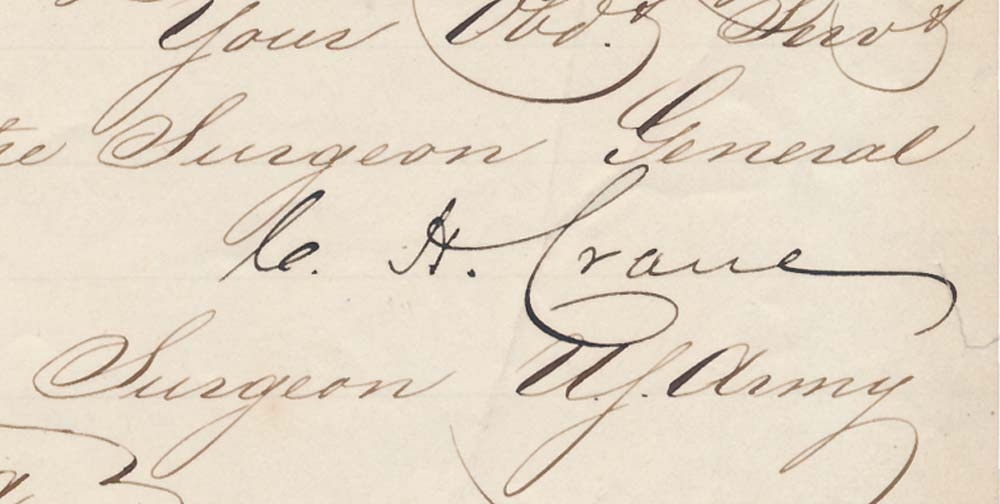 Your Obdt. Servt
the Surgeon General
C. H. Crane
Surgeon U.S. Army